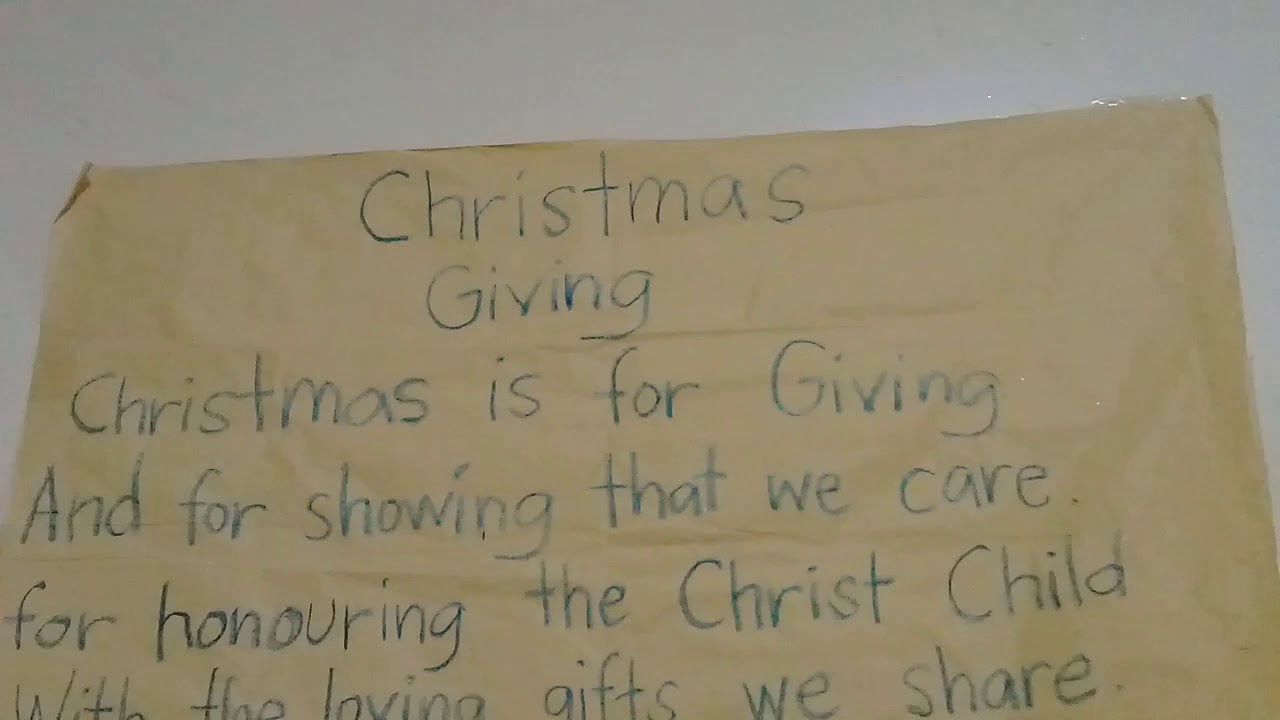 Christmas
Giving
Christmas is for Giving
And for showing that we care.
for honouring the Christ Child
With the loving gifts we share.